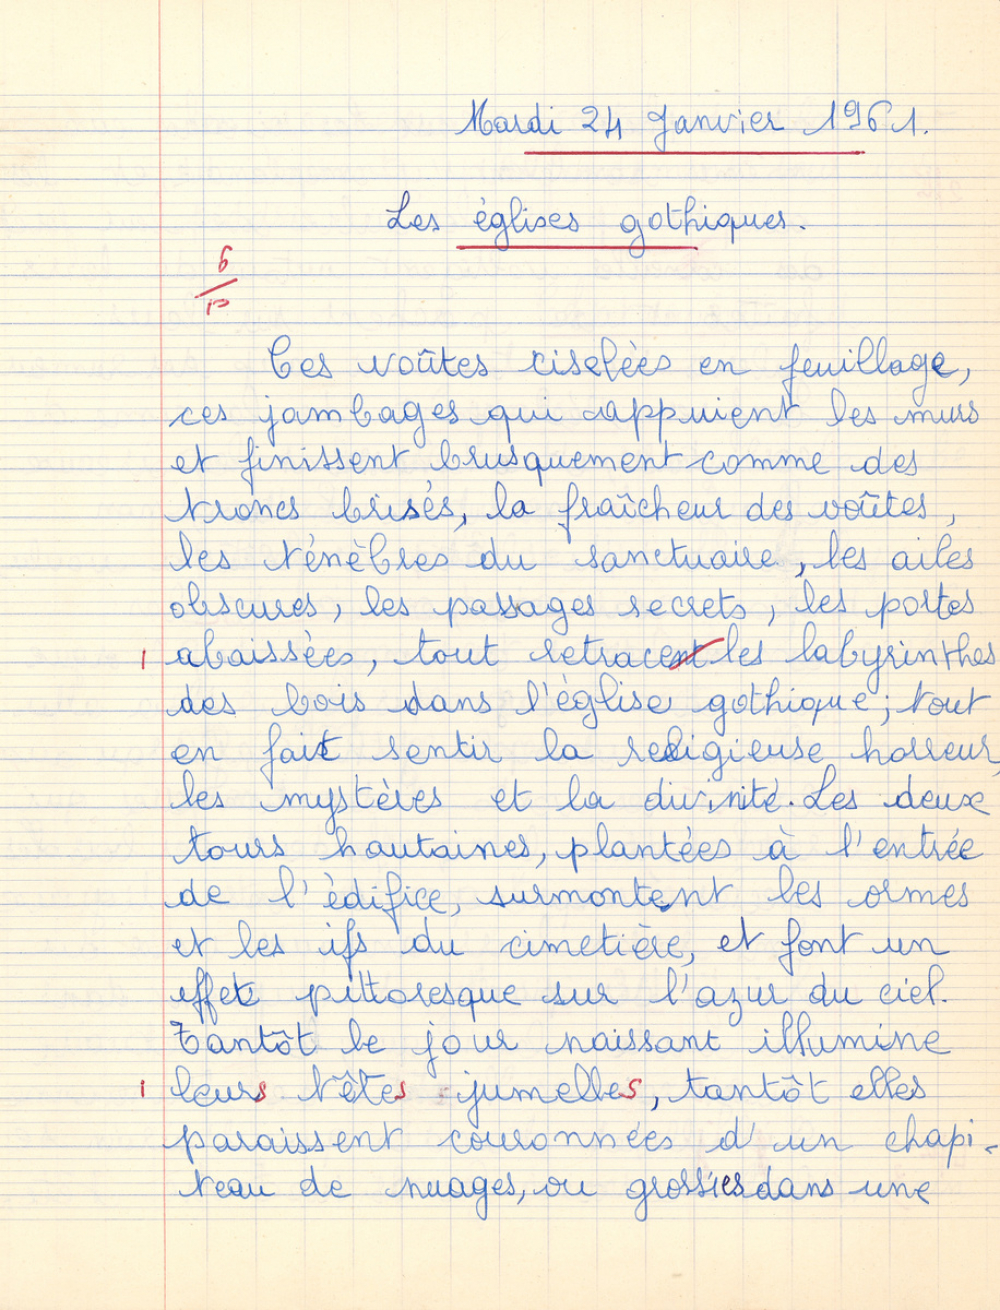 Mardi 24 Janvier 1961.
Les églises gothiques.
6
10
Ces voûtes ciselées en feuillage,
ces jambages qui appuient les murs
et finissent brusquement comme des
troncs brisés, la fraîcheur des voûtes,
les ténèbres du sanctuaire, les ailes
obscures, les passages secrets, les portes
1 abaissées, tout retracent les labyrinthes
des bois dans l'église gothique; tout
en fait sentir la religieuse horreur,
les mystères et la divinité. Les deux
tours hautaines, plantées à l'entrée
de l'édifice, surmontent les ormes
et les ifs du cimetière, et font un
effet pittoresque sur l'azur du ciel.
Tantôt le jour naissant illumine
1 leurs têtes jumelles, tantôt elles
paraissent couronnées d'un chapi-
teau de nuages, ou grossies dans une